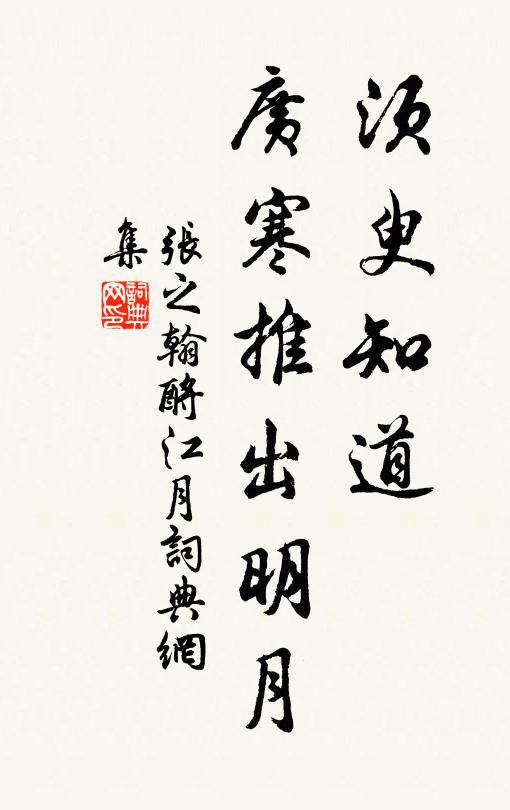 須臾知道
廣寒推出明月
張之翰酹江月詞典網
集
詞典
网印